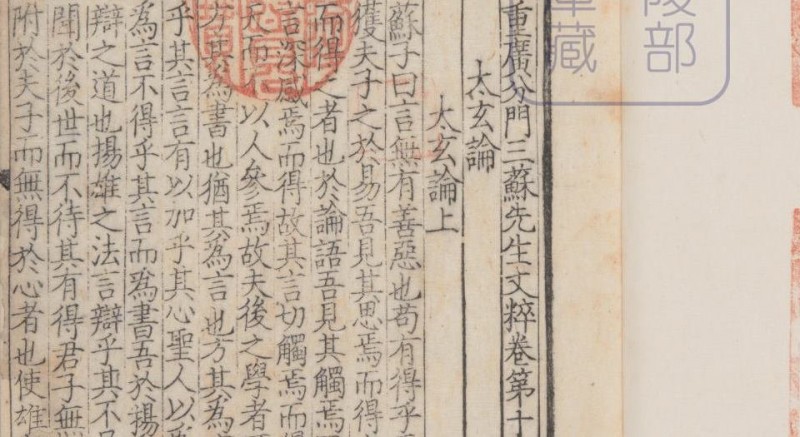 陵部
藏
重廣分門三蘇先生文粹卷第十
太玄論
太玄論上
蘇子曰言無有善惡也苟有得乎
獲夫子之於易吾見其思焉而得
而得之者也於論語吾見其觸焉
言深感焉而得故其言切觸焉而得
无而以人參焉故夫後之學者
方其為書也猶其為言也方其為
乎其言言有以加乎其心聖人以為
為言不得乎其言而為書吾於揚
辯之道也揚雄之法言辯乎其不
聞於後世而不待其有得君子無
附於夫子而無得於心者也使雄